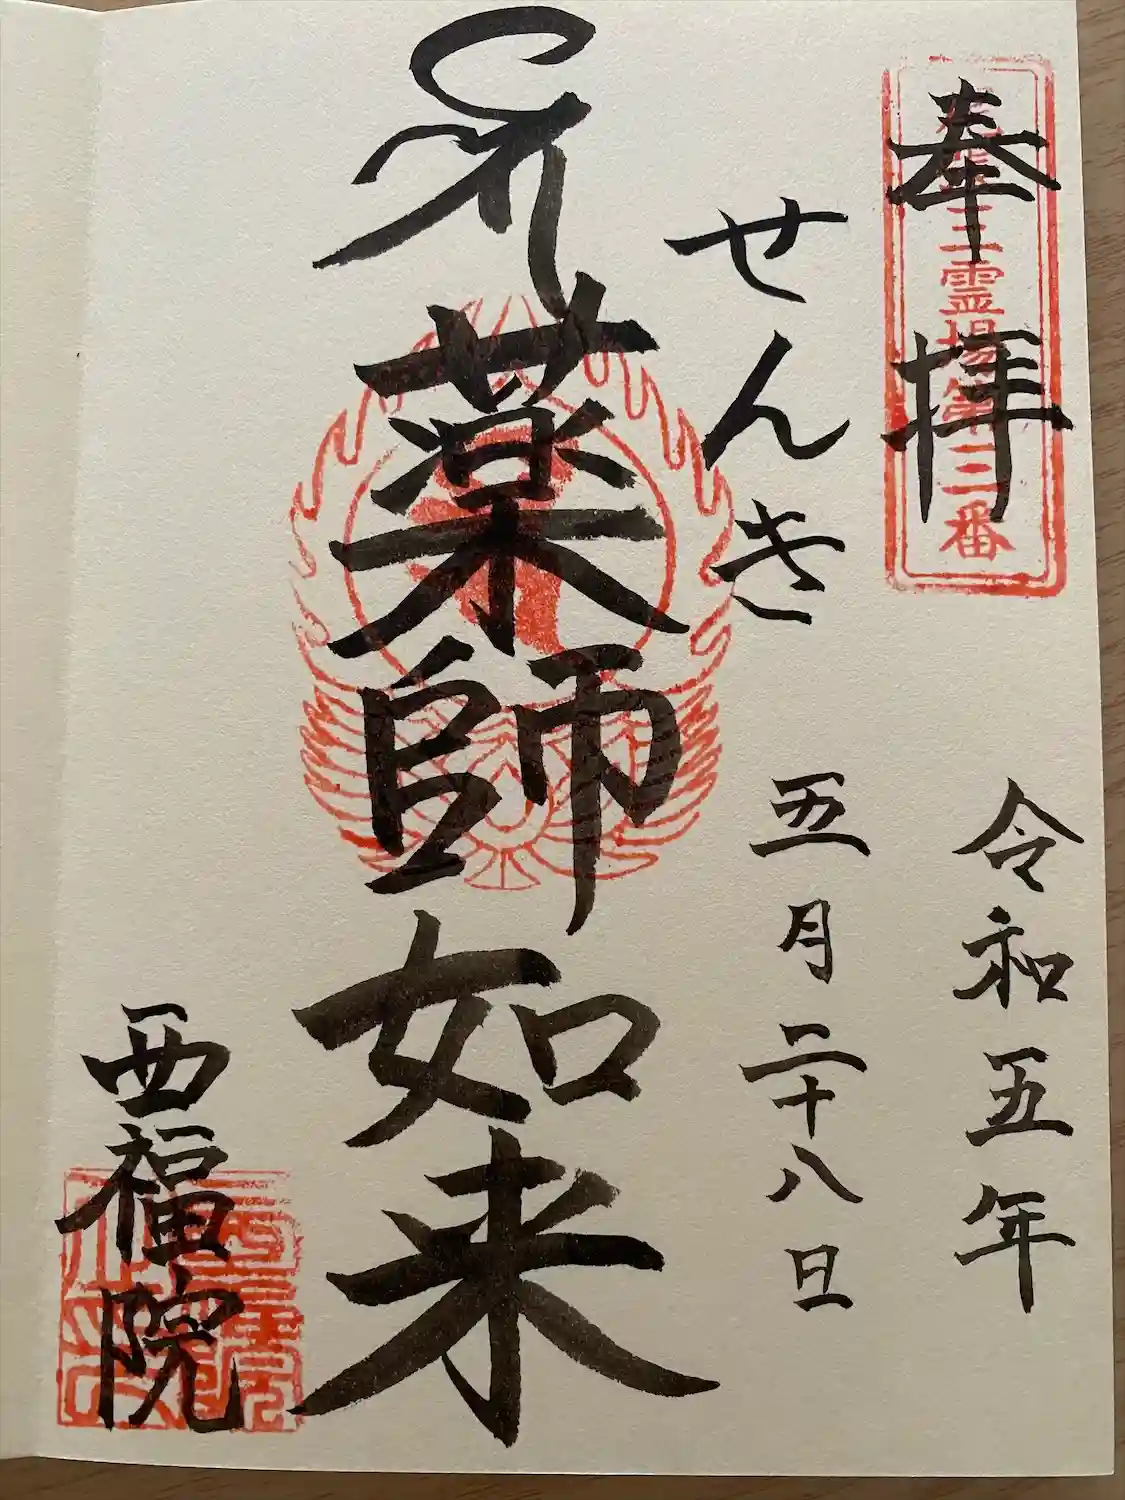 奉拝
三霊場第三番
令和五年
せんき
五月二十八日
薬師如来
西福院